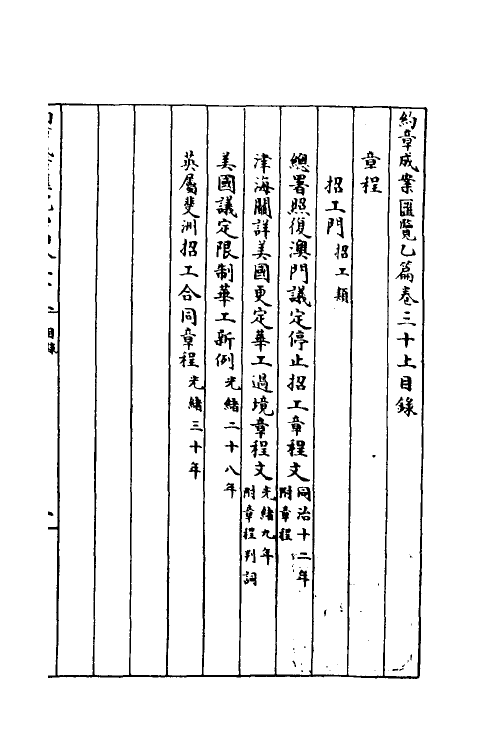 約章成案匯覽乙篇卷三十上目錄
章程
招工門招工類
總署照復澳門議定停止招工章程文同治十二年附章程
津海關詳美國更定華工過境章程文光緒九年附章程判詞
美國議定限制華工新例光緒二十八年
英屬斐洲招工合同章程光緒三十年
目錄